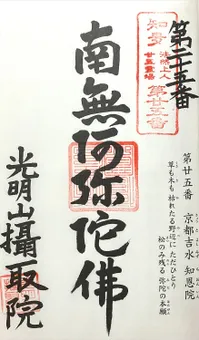 第二十五番
法然上人
廿五霊場
第廿五番
第廿五番 京都吉水 知恩院
草も木も 枯れたる野辺に ただひとり
松のみ残る 弥陀の本願
南無阿弥陀佛
光明山攝取院